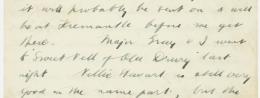 it will probably be sent on & will
be at Fremantle before we get
there. Major Gray & I went
to "Sweet Nell of Old Drury" last
night Nellie Stewart is still very
good in the name part, but the